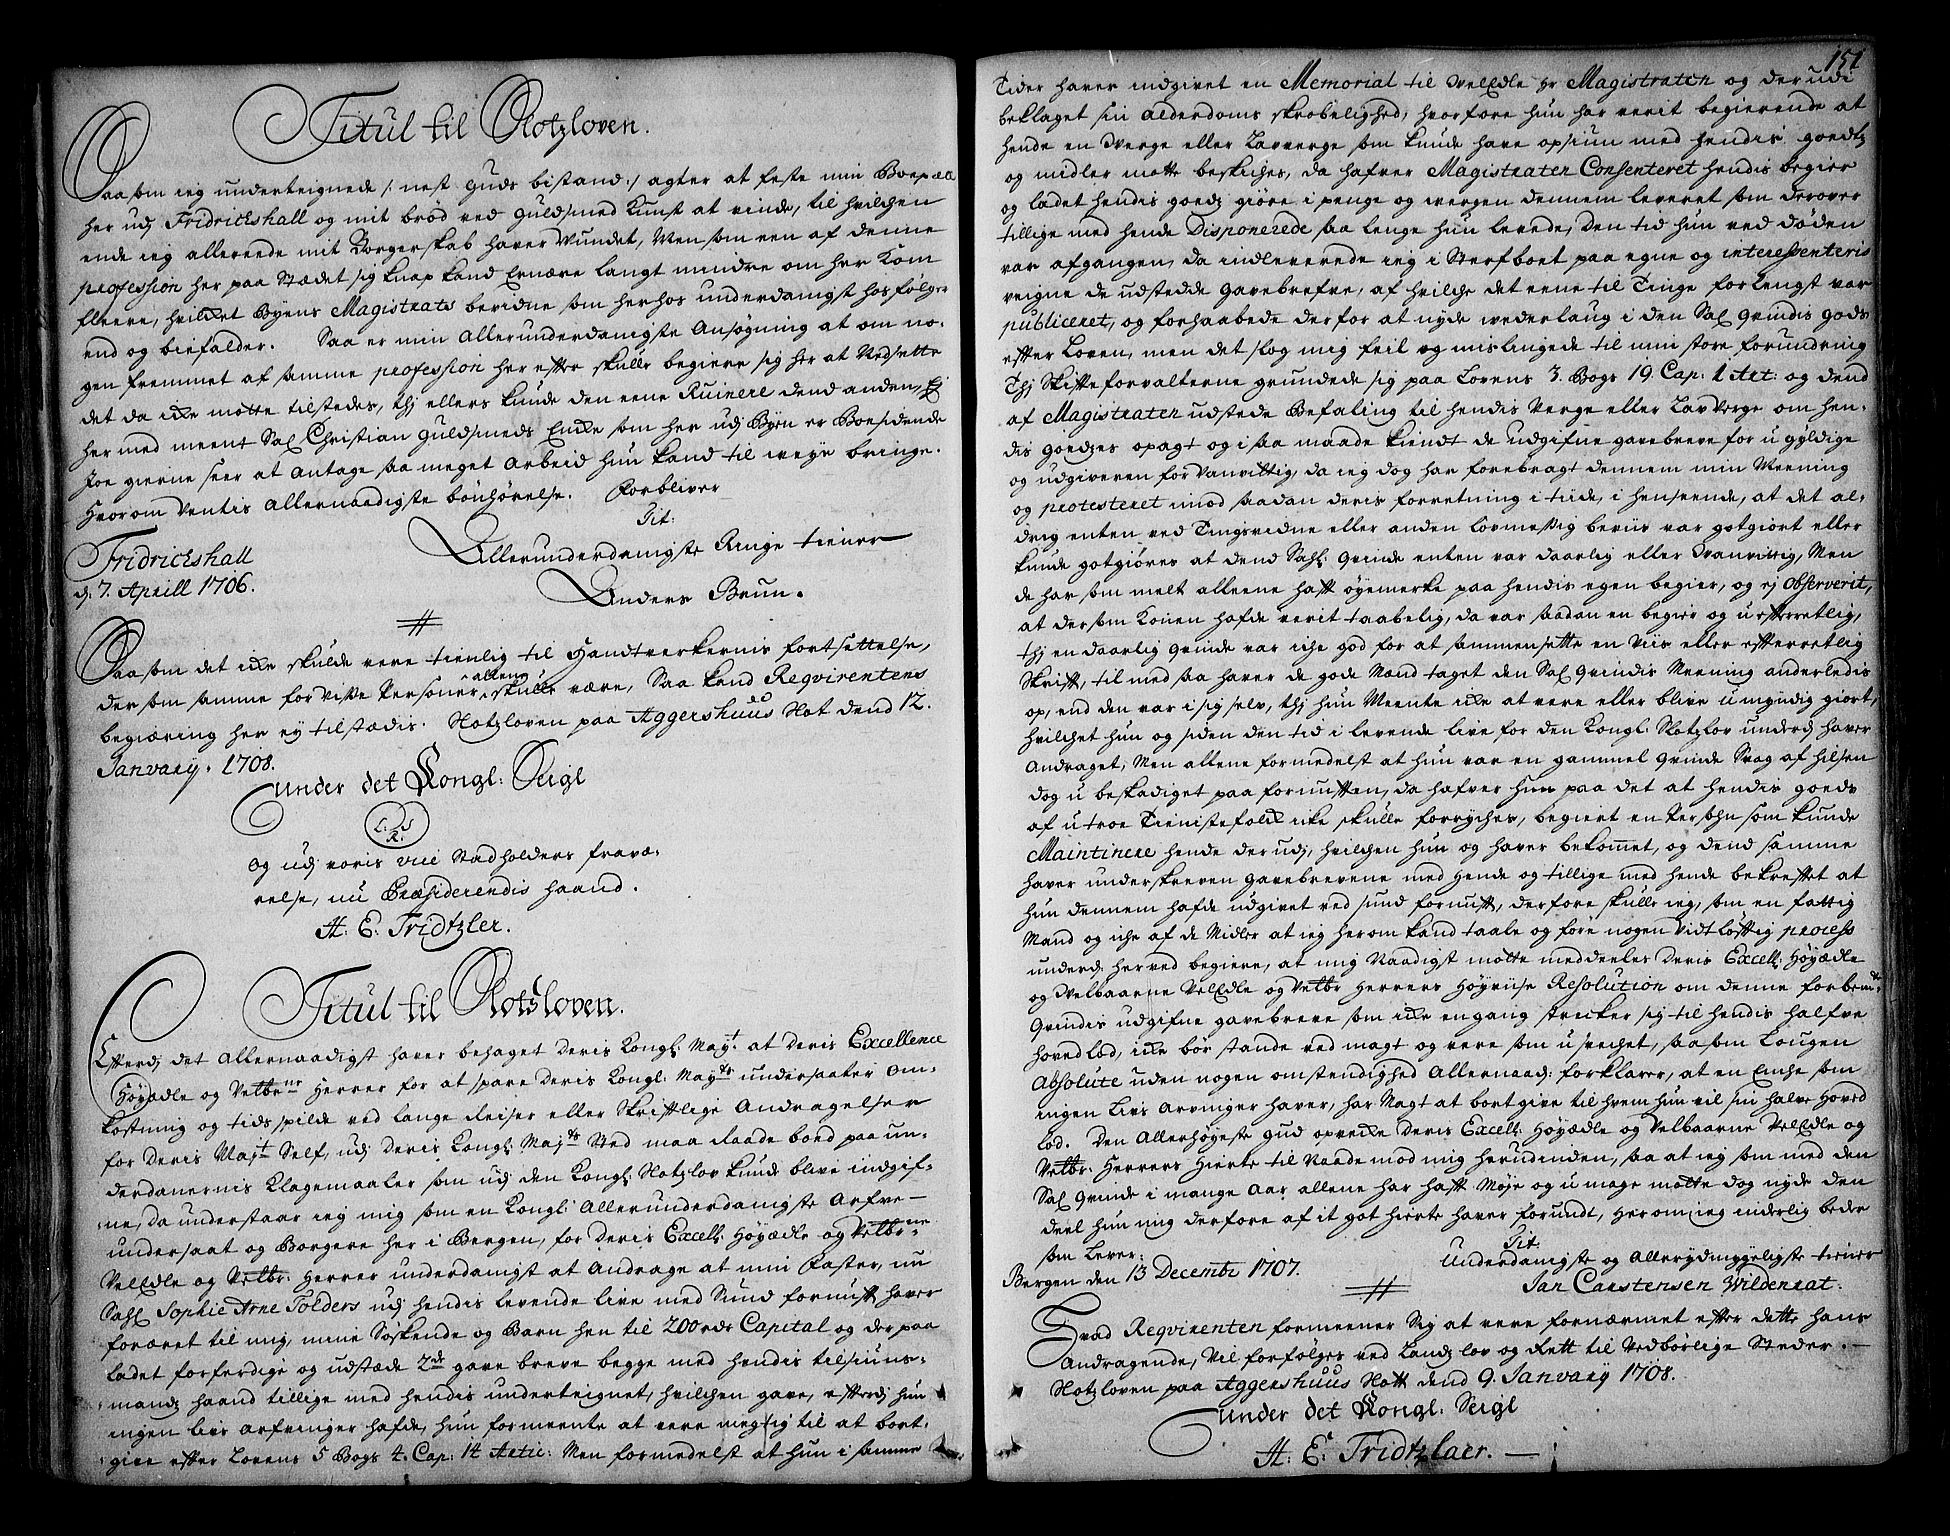 Titul til Slotzloven.
Saasom ieg underteignede /: nest Guds bistand :/ agter at feste min Boepæll
her udj Fridrichshall og mit brød ved Guldsmed Kunst at vinde, til hvilchen
ende ieg allereede mit Borgerskab haver Vundet, Men som een af denne
profession her paa Stædet sig knap kand Ernære langt mindre om her Kom
fleere, hvilcket Byens Magistrats bevidne som herhos underdanigst hosfølger
end og biefalder. Saa er min Allerunderdanigste Ansøgning at om no-
gen fremmet af samme profession her efter skulle begiere sig her at Nedsette
det da icke motte tilstedes, thj ellers kunde den eene Ruinere dend anden, Ej
hermed meent Sal Christian Guldsmeds Encke som her udj Byen er Boesidende
Joe gierne seer at Antage saa meget Arbeid hun kand til weye bringe.
Hvorom Ventis Allernaadigste bønhørelse. Forbliver
Tit:
Allerunderdanigste Ringe tiener
Fridrichshall
d: 7. Aprill 1706.
Anders Brun.
Saasom det icke skulde vere tienlig til Handtverkernis fortsettelse,
der som samme for visse Personer allene skulle være, Saa kand Reqvirentens
begiæring her ey tilstædis. Slotzloven paa Aggershuus Slot dend 12.
January. 1708.
Under det Kongl: Seigl
L. S.
R.
og udj voris vice Stadholders fravæ-
relse, nu Præsiderendis haand.
H: E: Tridtzler.
Titul til Slotzloven.
Efterdj det Allernaadigst haver behaget Deris Kongl: Mayt. at Deris Excellence
Høyædle og Velbne Herrer for at spare Deris Kongl: Mayts undersaater Om-
kostning og tids spilde ved lange Reiser eller Skrifftlige Andragelser
for Deris Mayt Self, udj Deris Kongl: Mayts Sted maa Raade boed paa un-
derdanernis Klagemaaler som udj den Kongl: Slotzlov kunde blive indgif-
ne, da understaar ieg mig som en Kongl: Allerunderdanigste Arfve-
undersaat og Borgere her i Bergen, for Deris Excell: Høyædle og Velbne
VelEdle og Velbr: Herrer underdanigst at Andrage at min Faster, nu
Sahl Sophie Arne Tolders udj hendis levende live med Sund fornuft haver
foræret til mig, mine Søskende og Barn hen til 200 rdr Capital og der paa
ladet forferdige og udstæde 2de gave breve begge med hendis tilsiuns-
mandz haand tillige med hendis underteignet, hvilchen gave, efterdj hun
ingen livs arfvinger hafde, hun formeente at vere megtig til at bort-
give efter Lovens 5 Bogs 4. Cap: 14 Artic: Men formedelst at hun i samme
151
Tider haver indgivet en Memorial til VelEdle Hr Magistraten og der udi
beklaget sin Alderdoms skrøbelighed, hvorfore hun har verit begierende at
hende en Verge eller Lavverge som kunde have opsiun med hendis goedtz
og midler motte beskiches, da hafver Magistraten Consenteret hendis begier
og ladet hendis goedz giøre i penge og wergen dennem leveret som derover
tillige med hende Disponerede saa lenge hun levede, Den tid hun ved døden
var afgangen, da indleverede ieg i Sterfboet paa egne og interessenteris
veigne de udstedde gavebrefve, af hvilche det eene til Tinge forlengst var
publiceret, og forhaabede derfor at nyde wederlaug i den Sal Qvindis gods
efter Loven, men det slog mig feil og mislingede til min store forundring
Thj Skifteforvalterne grundede sig paa Lovens 3. Bogs 19. Cap: 1 Art: og dend
af Magistraten udstede Befaling til hendis Verge eller Lavverge om hen-
dis goedses opagt og i saa maade kiendt de udgifne gavebreve for u gyldige
og udgiveren for Vanvittig, da ieg dog har forebragt dennem min Meening
og protesteret imod saadan deris forretning i tiide, i henseende, at det al-
drig enten ved Tingsvidne eller anden lovmessig beviis var gotgiort eller
kunde gotgiøres at dend Sahl: Qvinde enten var daarlig eller Vanvittig, Men
de har som melt alleene hafft øyemerke paa hendis egen begier, og ej Observerit,
at dersom Konen hafde verit taabelig, da var saadan en begier og u efterretlig,
thj en daarlig Qvinde var iche god for at sammensette en Viis eller efterretlig
Skrift, til med saa haver de gode Mænd taget den Sal Qvindis Meening anderledis
op, end den var i sig selv, thj hun Meente icke at vere eller blive u myndig giort,
hvilchet hun og siden den tid i levende live for den Kongl: Slotzlov underd: haver
Andraget, Men allene formedelst at hun var en gammel Qvinde Svag af hilsen
dog u beskadiget paa fornuften, da hafver hun paa det at hendis goeds
af utroe Tienistefolck icke skulle forryches, begiert en Persohn som kunde
Maintinere hende der udj, hvilchen hun og haver bekommet, og dend samme
haver underskreven gavebrevene med hende og tillige med hende bekreftet at
hun dennem hafde udgivet ved sund fornuft, derfore skulle ieg, som en fattig
Mand og iche af de Midler at ieg herom kand taale og føre nogen Vidtløftig process
underd: herved begiere, at mig Naadigst motte meddeeles Deris Excell: Høyædle
og Velbaarne VelEdle og Velbr Herrers Høyviise Resolution om denne forbemte
Qvindis udgifne gavebreve som icke engang strecker sig til hendis halfve
hoved lod, icke bør stande ved magt og vere som u svechet, saasom Lougen
Absolute uden nogen omstendighed Allernaad: forklarer, at en Enche som
ingen Livs Arvinger haver, har Magt at bortgive til hvem hun vil sin halve Hoved
lod. Den Allerhøyeste Gud opvecke Deris Excell: Høyædle og Velbaarne VelEdle og
Velbr: Herrers Hierte til Naade mod mig herudinden, saa at ieg som med den
Sal Qvinde i mange Aar allene har hafft Møje og u mage motte dog nyde den
deel hun mig derfore af it got hierte haver forundt, herom ieg inderlig beder
som Lever:
Tit
Underdanigste og Allerydmygeligste tiener
Bergen den 13 Decembr 1707.
Jan Carstensen Wildenrat:
Hvad Reqvirenten formeener Sig at vere fornærmet efter dette hans
Andragende, Vil forfølges ved Landz lov og Rett til Vedbørlige Steder.
Slotzloven paa Aggershuus Slott dend 9. January 1708.
Under det Kongl: Seigl
H: E: Tridtzlaer.